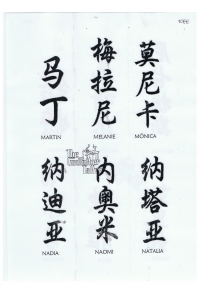 马丁
MARTIN
梅拉尼
MELANIE
莫尼卡
MÓNICA
纳迪亚
NADIA
内奥米
NAOMI
纳塔亚
NATALIA